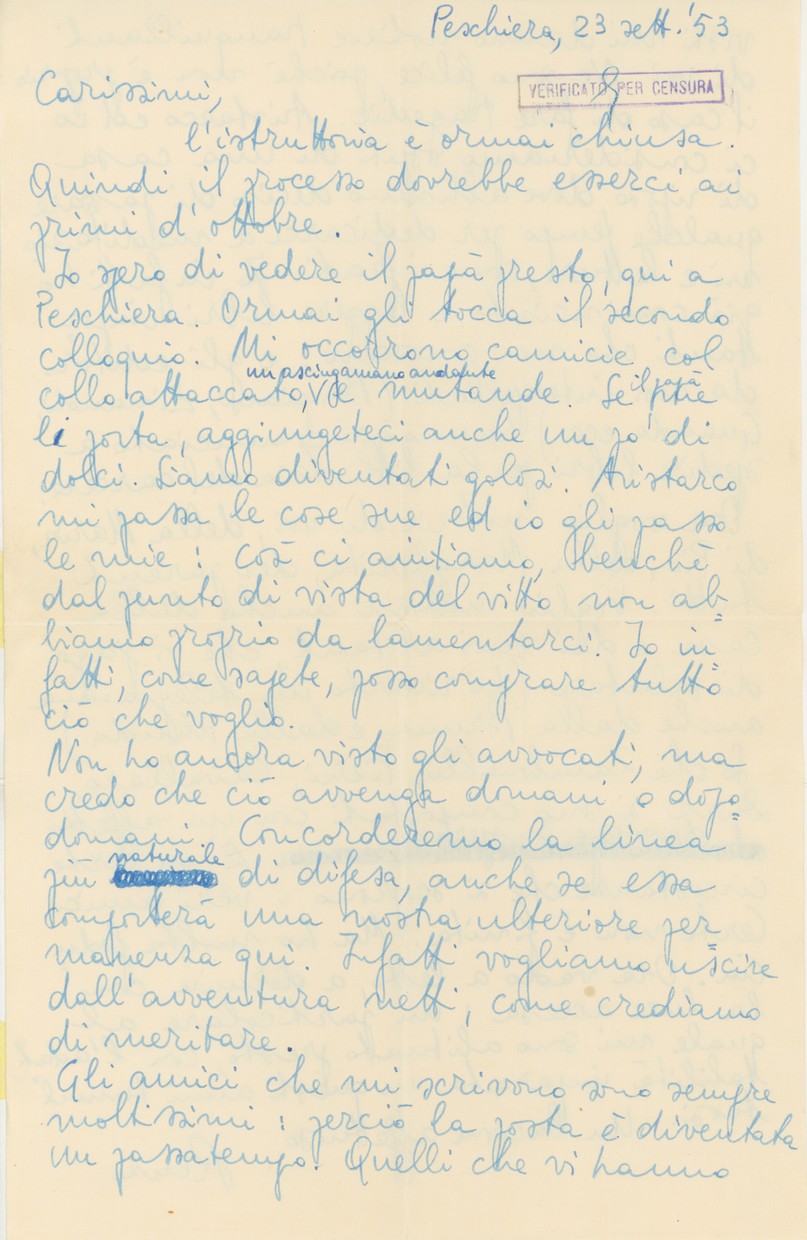 Peschiera, 23 sett. '53
VERIFICATO PER CENSURA
Carissimi,
l'istruttoria è ormai chiusa.
Quindi il processo dovrebbe esserci ai
primi d'ottobre.
Io spero di vedere il papà presto, qui a
Peschiera. Ormai gli tocca il secondo
colloquio. Mi occorrono camicie col
un asciugamano andante
collo attaccato, e mutande. Se
il papà
li porta, aggiungeteci anche un po' di
dolci. Siamo diventati golosi. Aristarco
mi passa le cose sue ed io gli passo
le mie: così ci aiutiamo, benché
dal punto di vista del vitto non ab=
biamo proprio da lamentarci. Io in=
fatti, come sapete, posso comprare tutto
ciò che voglio.
Non ho ancora visto gli avvocati, ma
credo che ciò avvenga domani o dopo=
domani. Concorderemo la linea
naturale
più di difesa, anche se essa
comporterà una nostra ulteriore per
manenza qui. Infatti vogliamo uscire
dall'avventura netti, come crediamo
di meritare.
Gli amici che mi scrivono sono sempre
moltissimi: perciò la posta è diventata
un passatempo. Quelli che vi hanno